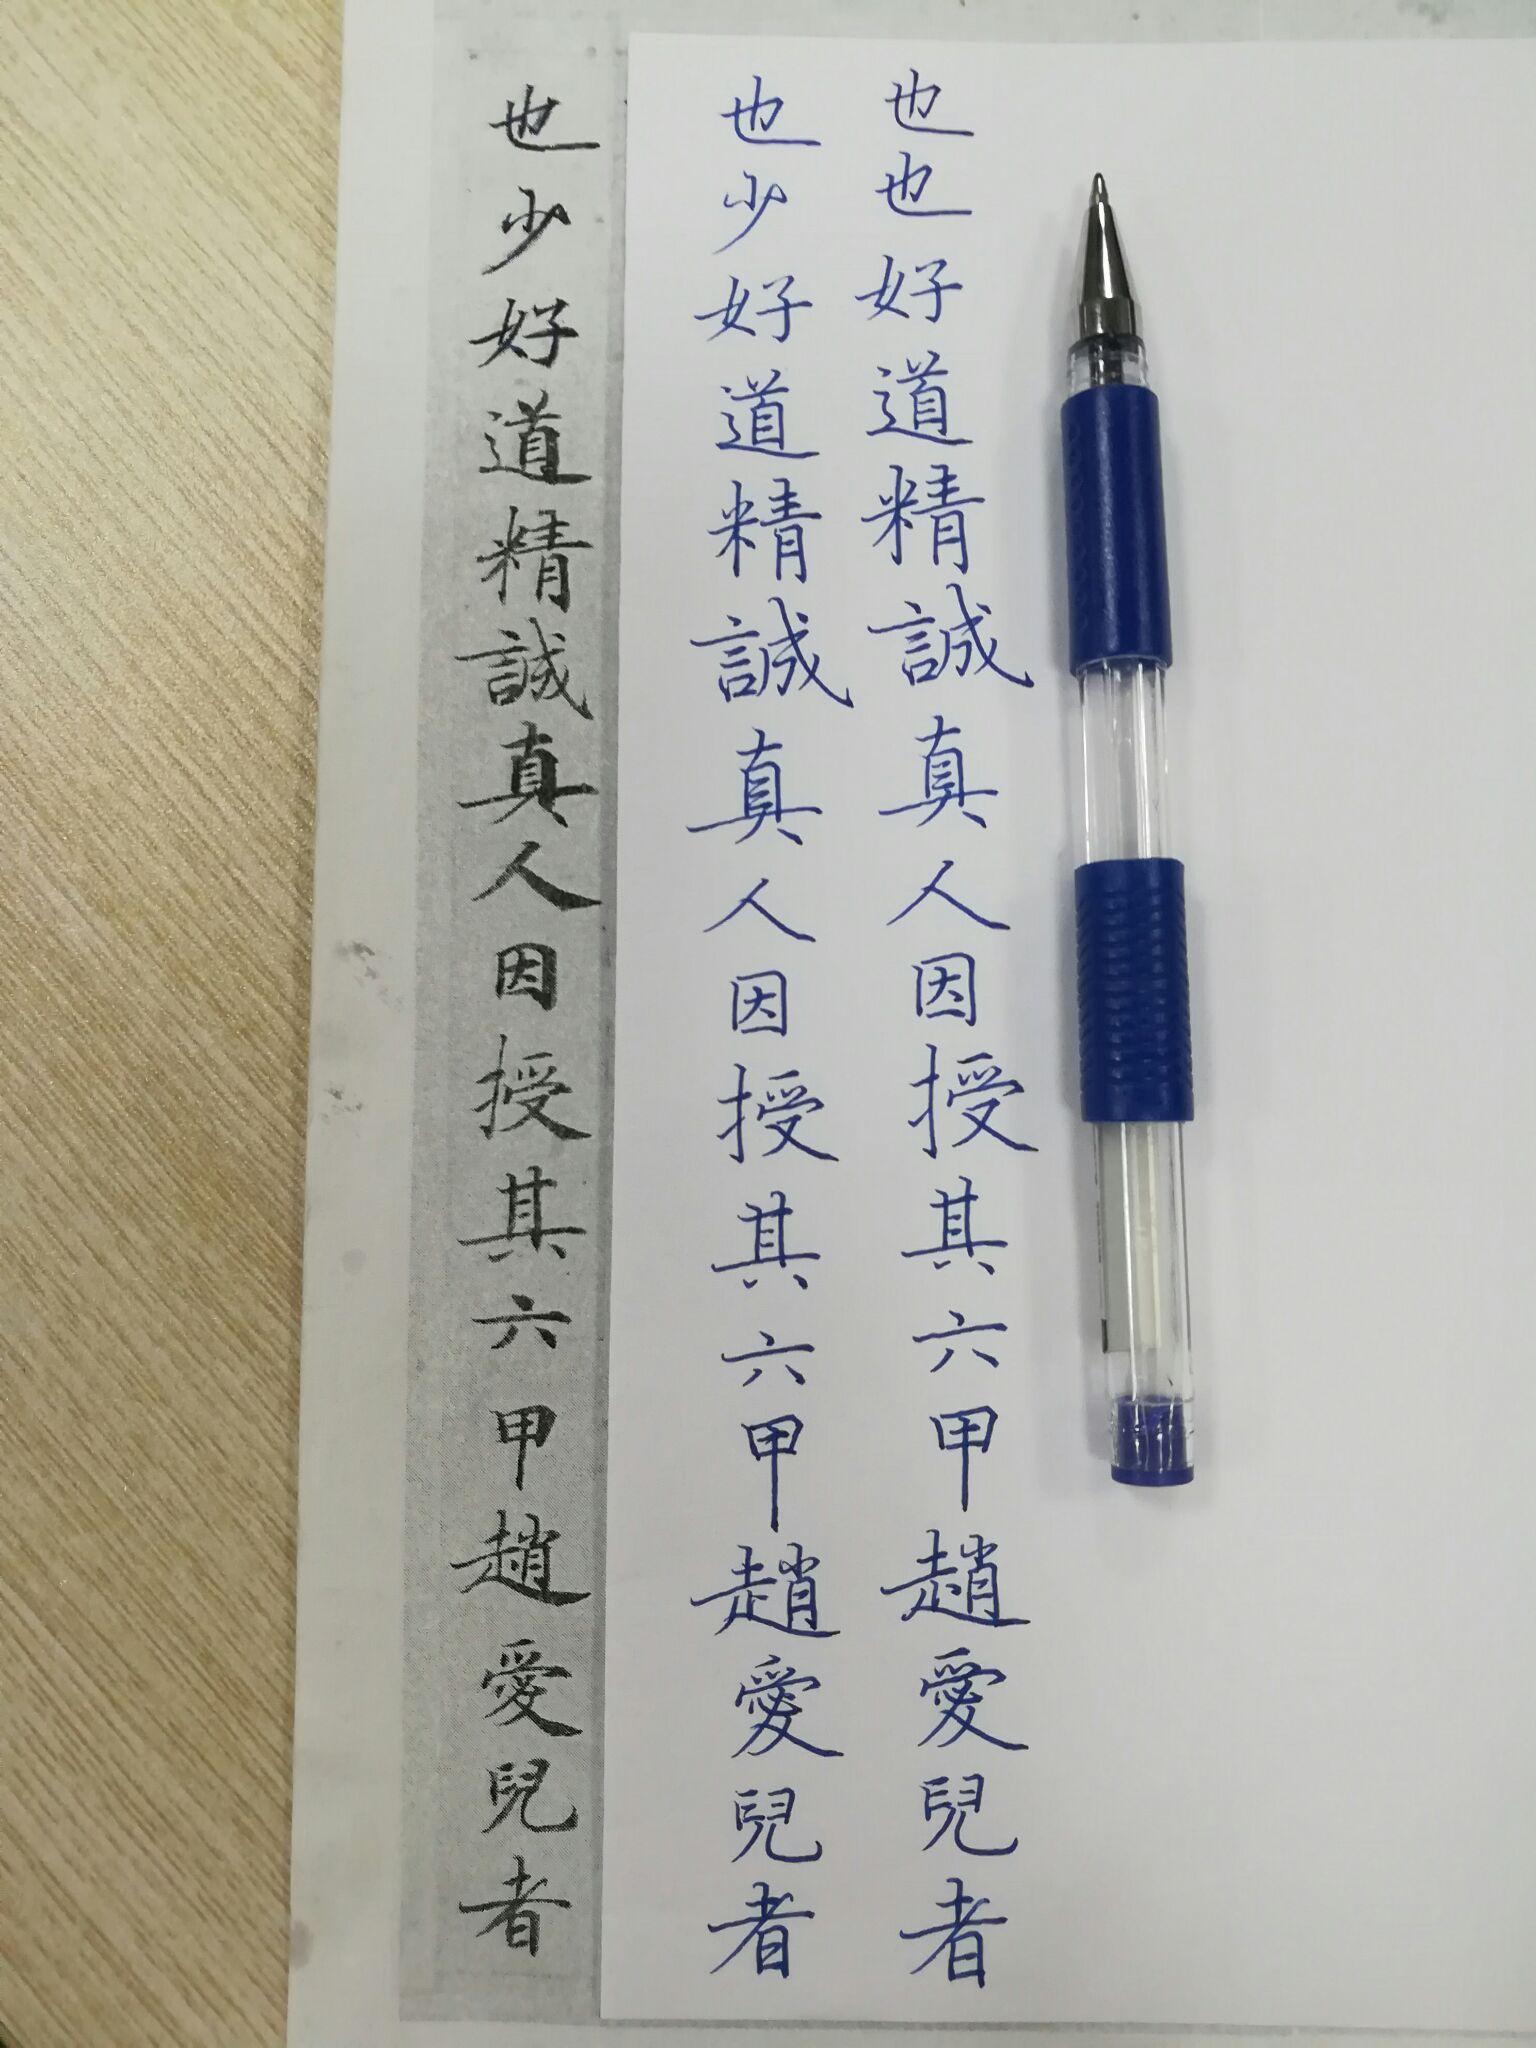 也少好道精誠真人因授其六甲趙愛兒者
也少好道精誠真人因授其六甲趙愛兒者
也也好道精誠真人因授其六甲趙愛兒者